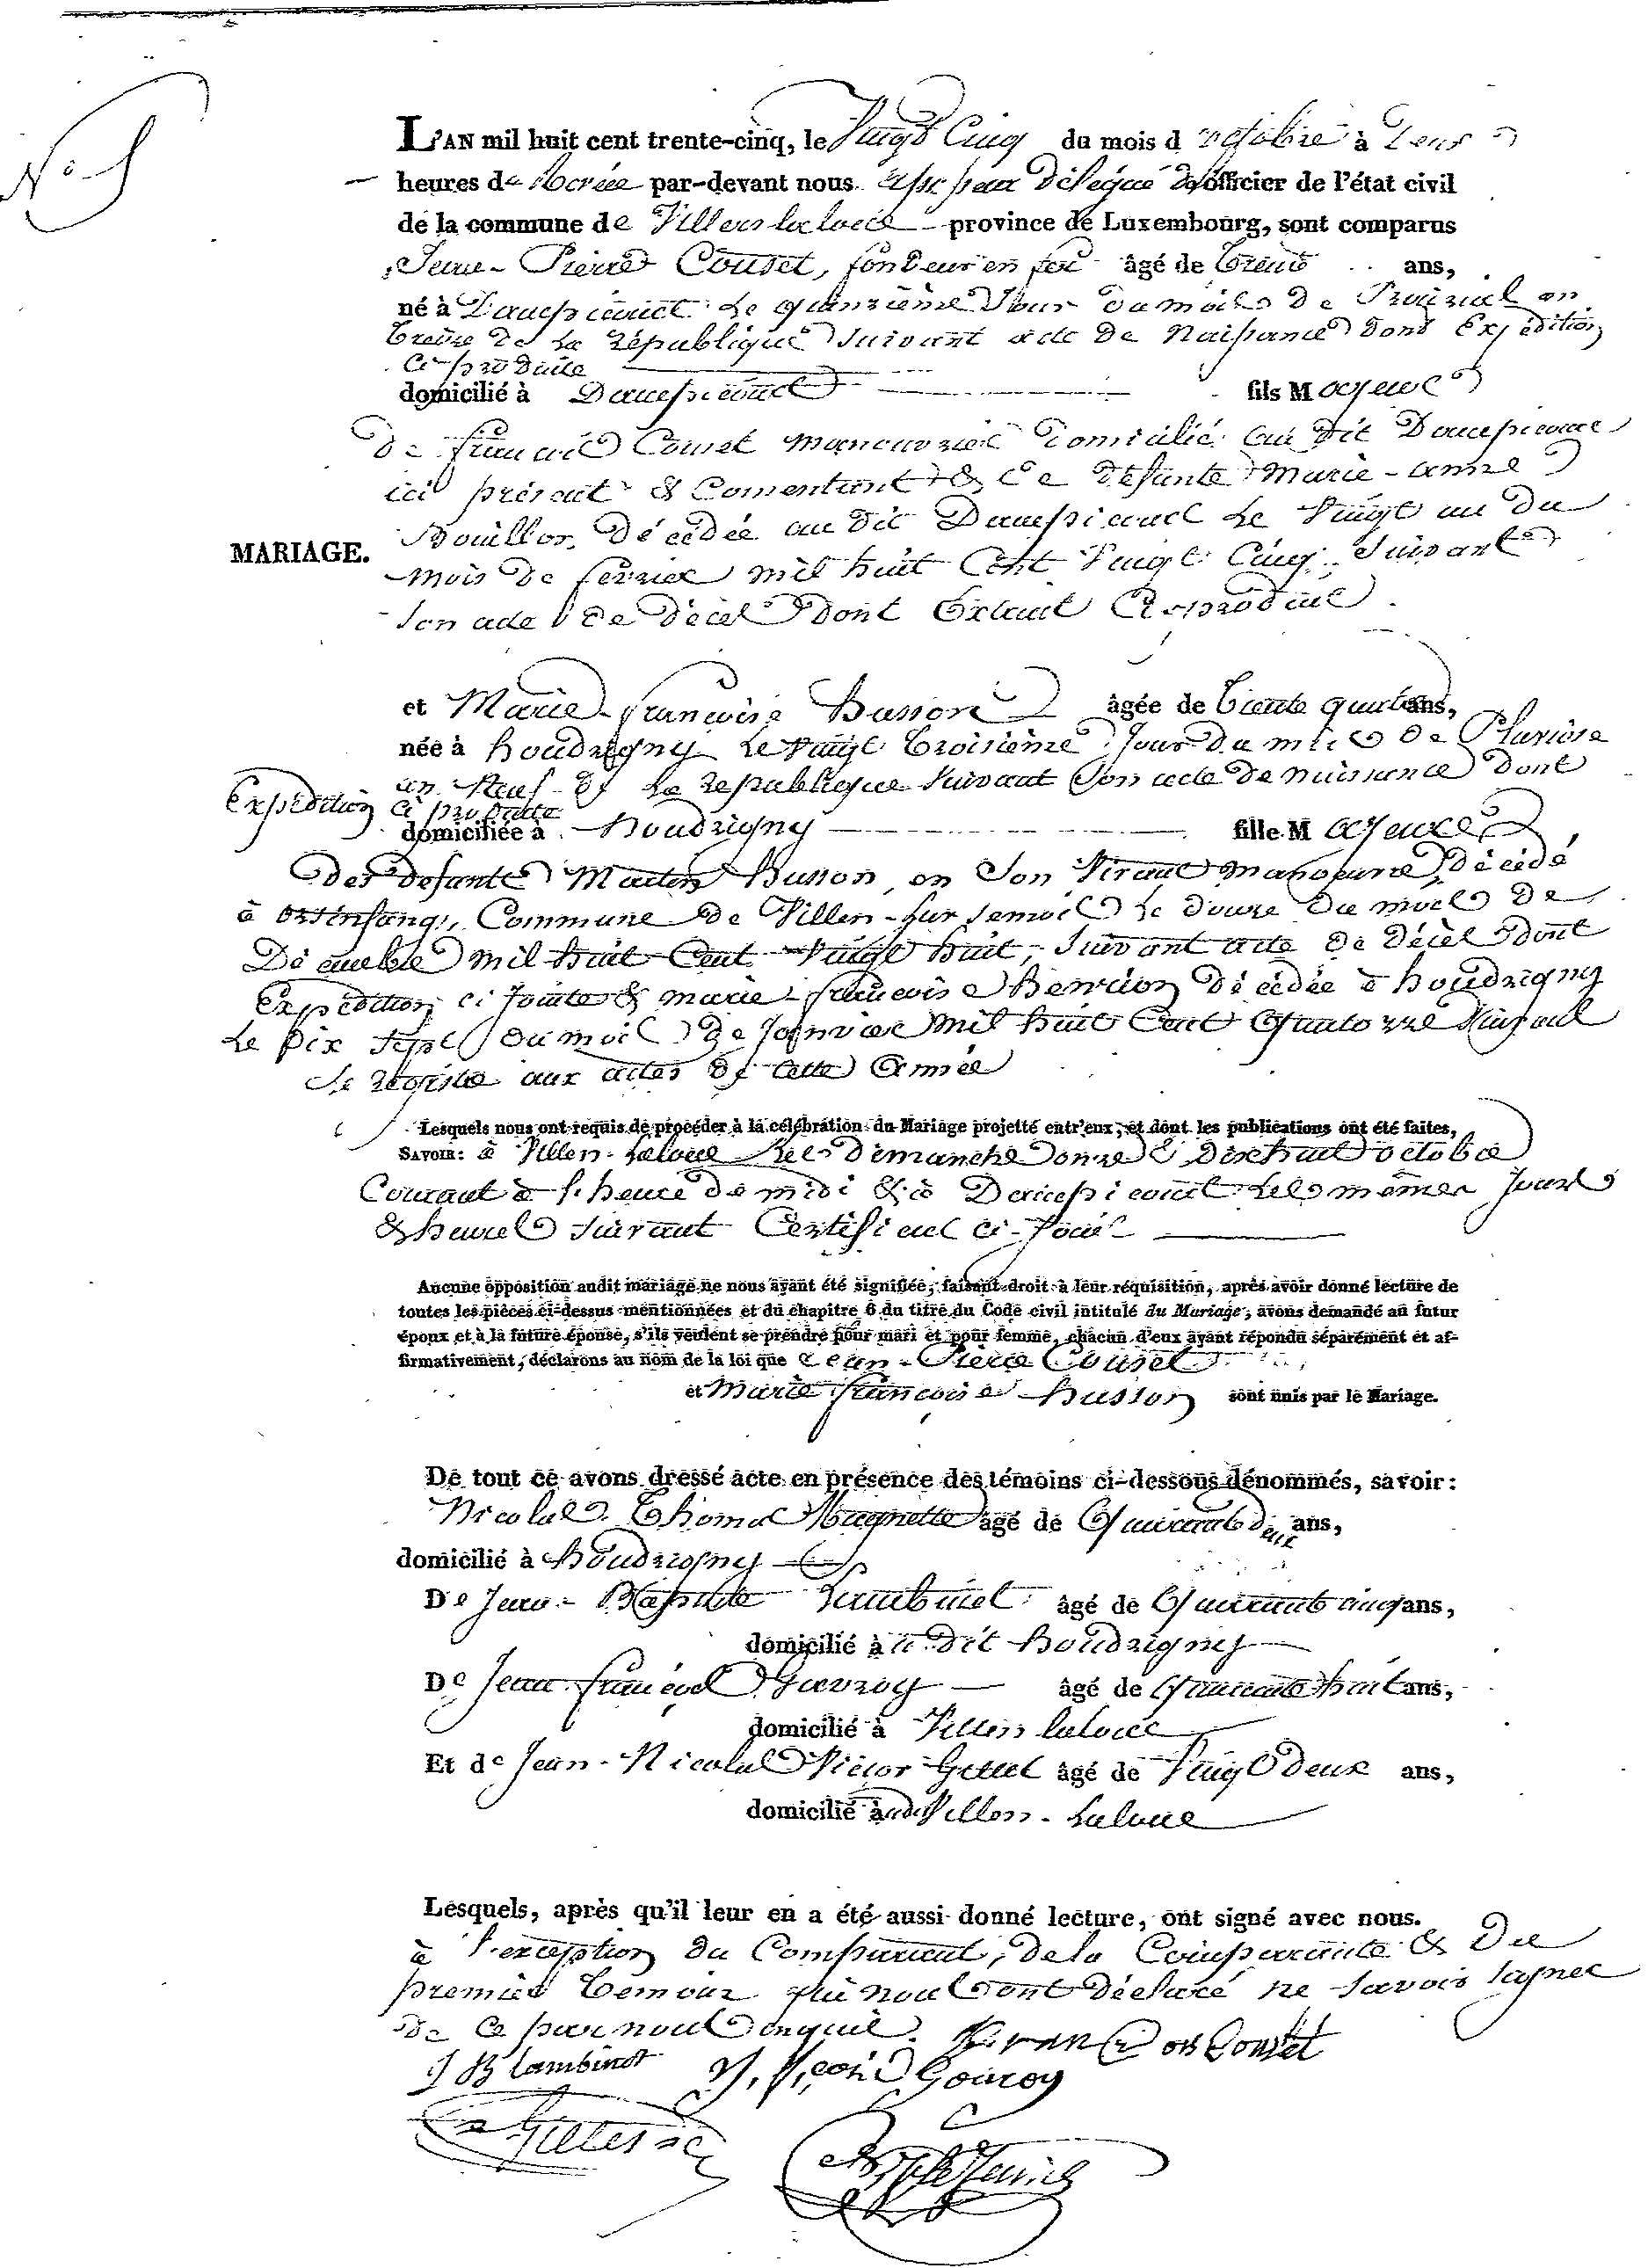 No
L'AN mil huit cent trente-cinq, le Vingt Cinq du mois d'octobre à
heures de par-devant nous délégué de officier de l'état civil
de la commune de Villers la loue province de Luxembourg, sont comparus
Jean-Pierre Couset, fondeur en fer âgé de trente ans,
né à Dampicourt le quinzième Jour du mois de Prairial an
treize de la république suivant acte de Naissance dont Expédition
Ci-produite
domicilié à Dampicourt fils Majeur
de François Couset manouvrier domicilié au dit Dampicourt
ici présent & Consentant & de défunte Marie-anne
Bouillon, décédée au dit Dampicourt le Vingt un du
MARIAGE.
mois de fevrier mil huit Cent Vingt Cinq, Suivant
Son acte de décès dont Extrait Ci-produit.
et Marie-françoise Husson âgée de trente quatre ans,
née à houdrigny le Vingt troisième Jour du mois de Pluviose
an Neuf de la republique Suivant Son acte de naissance dont
Expédition ci produite
domiciliée à houdrigny fille Majeure
des defunts Martin Husson, en Son Vivant manoeuvre, décédé
à ortinfang, Commune de Villers-Sur Semois le douze du mois de
Décembre mil huit Cent Vingt huit, Suivant acte de décès dont
Expédition ci jointe & marie-françoise henrion décédée à houdrigny
Le Dix Sept du mois de Janvier mil huit Cent Quatorze Suivant
le registre aux actes de Cette Année
Lesquels nous ont requis de procéder à la célébration du Mariage projetté entr'eux, et dont les publications ont été faites,
SAVOIR: à Villers-laloue les dimanche onze & Dixhuit octobre
Courant à l'heure de midi & à Dampicourt les mêmes Jours
& heures Suivant Certificat ci-Joint
Aucune opposition audit mariage ne nous ayant été signifiée, faisant droit à leur réquisition, après avoir donné lecture de
toutes les pièces ci-dessus mentionnées et du chapitre 6 du titre du Code civil intitulé du Mariage, avons demandé au futur
époux et à la future épouse, s'ils veulent se prendre pour mari et pour femme, chacun d'eux ayant répondu séparément et af-
firmativement, déclarons au nom de la loi que Jean-Pierre Couset
et Marie françoise husson sont unis par le Mariage.
De tout ce avons dressé acte en présence des témoins ci-dessous dénommés, savoir:
Nicolas Thomas Magnette âgé de Quarante deux ans,
domicilié à houdrigny
De Jean-Baptiste Lambinet âgé de Quarante cinq ans,
domicilié à u dit houdrigny
De Jean françois Gavroy âgé de Quarante huit ans,
domicilié à Villers laloue
Et de Jean-Nicolas Victor âgé de Vingt deux ans,
domicilié à udit Villers-Laloue
Lesquels, après qu'il leur en a été aussi donné lecture, ont signé avec nous.
à l'exception du Comparant, de la Comparante & du
premier témoin qui nous ont déclaré ne savoir signer
de ce par nous enquis. François Couset
J B Lambinet